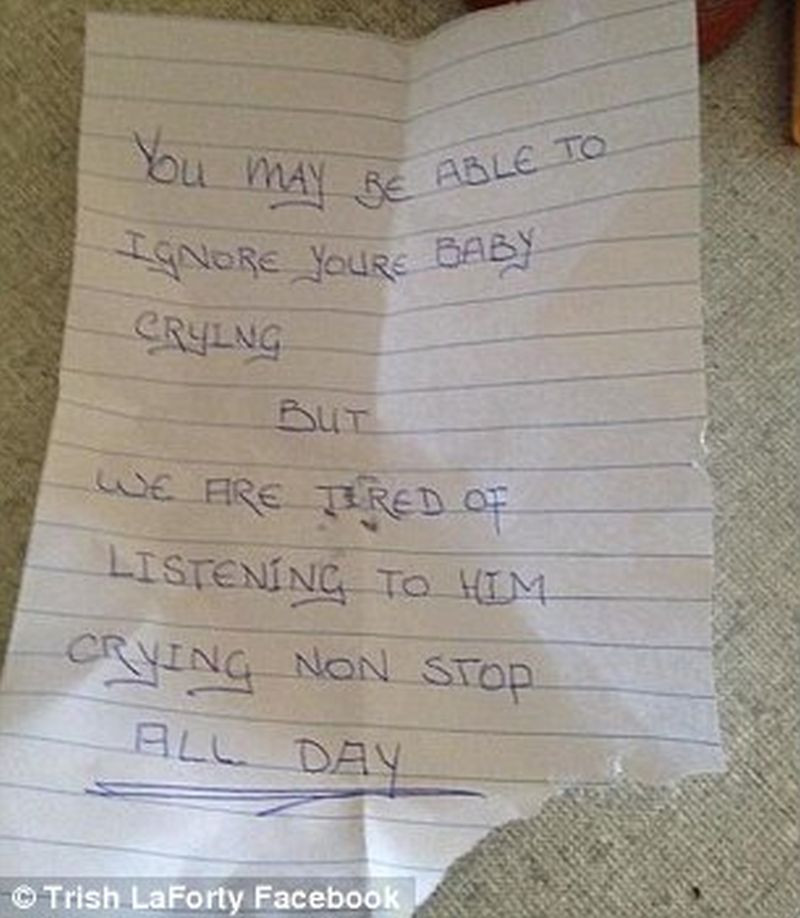 YOU MAY BE ABLE TO
IGNORE YOURE BABY
CRYING
BUT
WE ARE TIRED OF
LISTENING TO HIM
CRYING NON STOP
ALL DAY
© Trish LaForty Facebook